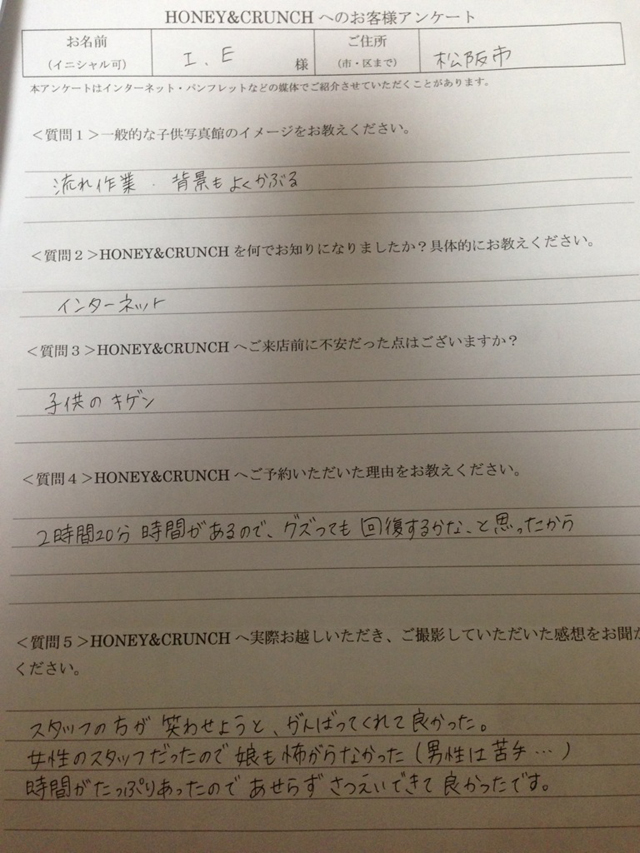 HONEY&CRUNCH へのお客様アンケート
お名前
(イニシャル可)
I. E 様
ご住所
(市・区まで)
松阪市
本アンケートはインターネット・パンフレットなどの媒体でご紹介させていただくことがあります。
＜質問１＞一般的な子供写真館のイメージをお教えください。
流れ作業. 背景もよくかぶる
＜質問２＞HONEY&CRUNCH を何でお知りになりましたか？具体的にお教えください。
インターネット
＜質問３＞HONEY&CRUNCH へご来店前に不安だった点はございますか？
子供のキゲン
＜質問４＞HONEY&CRUNCH へご予約いただいた理由をお教えください。
2時間20分 時間があるので、グズっても 回復するかな、と思ったから
＜質問５＞HONEY&CRUNCH へ実際お越しいただき、ご撮影していただいた感想をお聞か
ください。
スタッフの方が 笑わせようと、がんばってくれて良かった。
女性のスタッフだったので 娘も怖がらなかった (男性は苦手…)
時間がたっぷりあったので あせらず さつえいできて 良かったです。